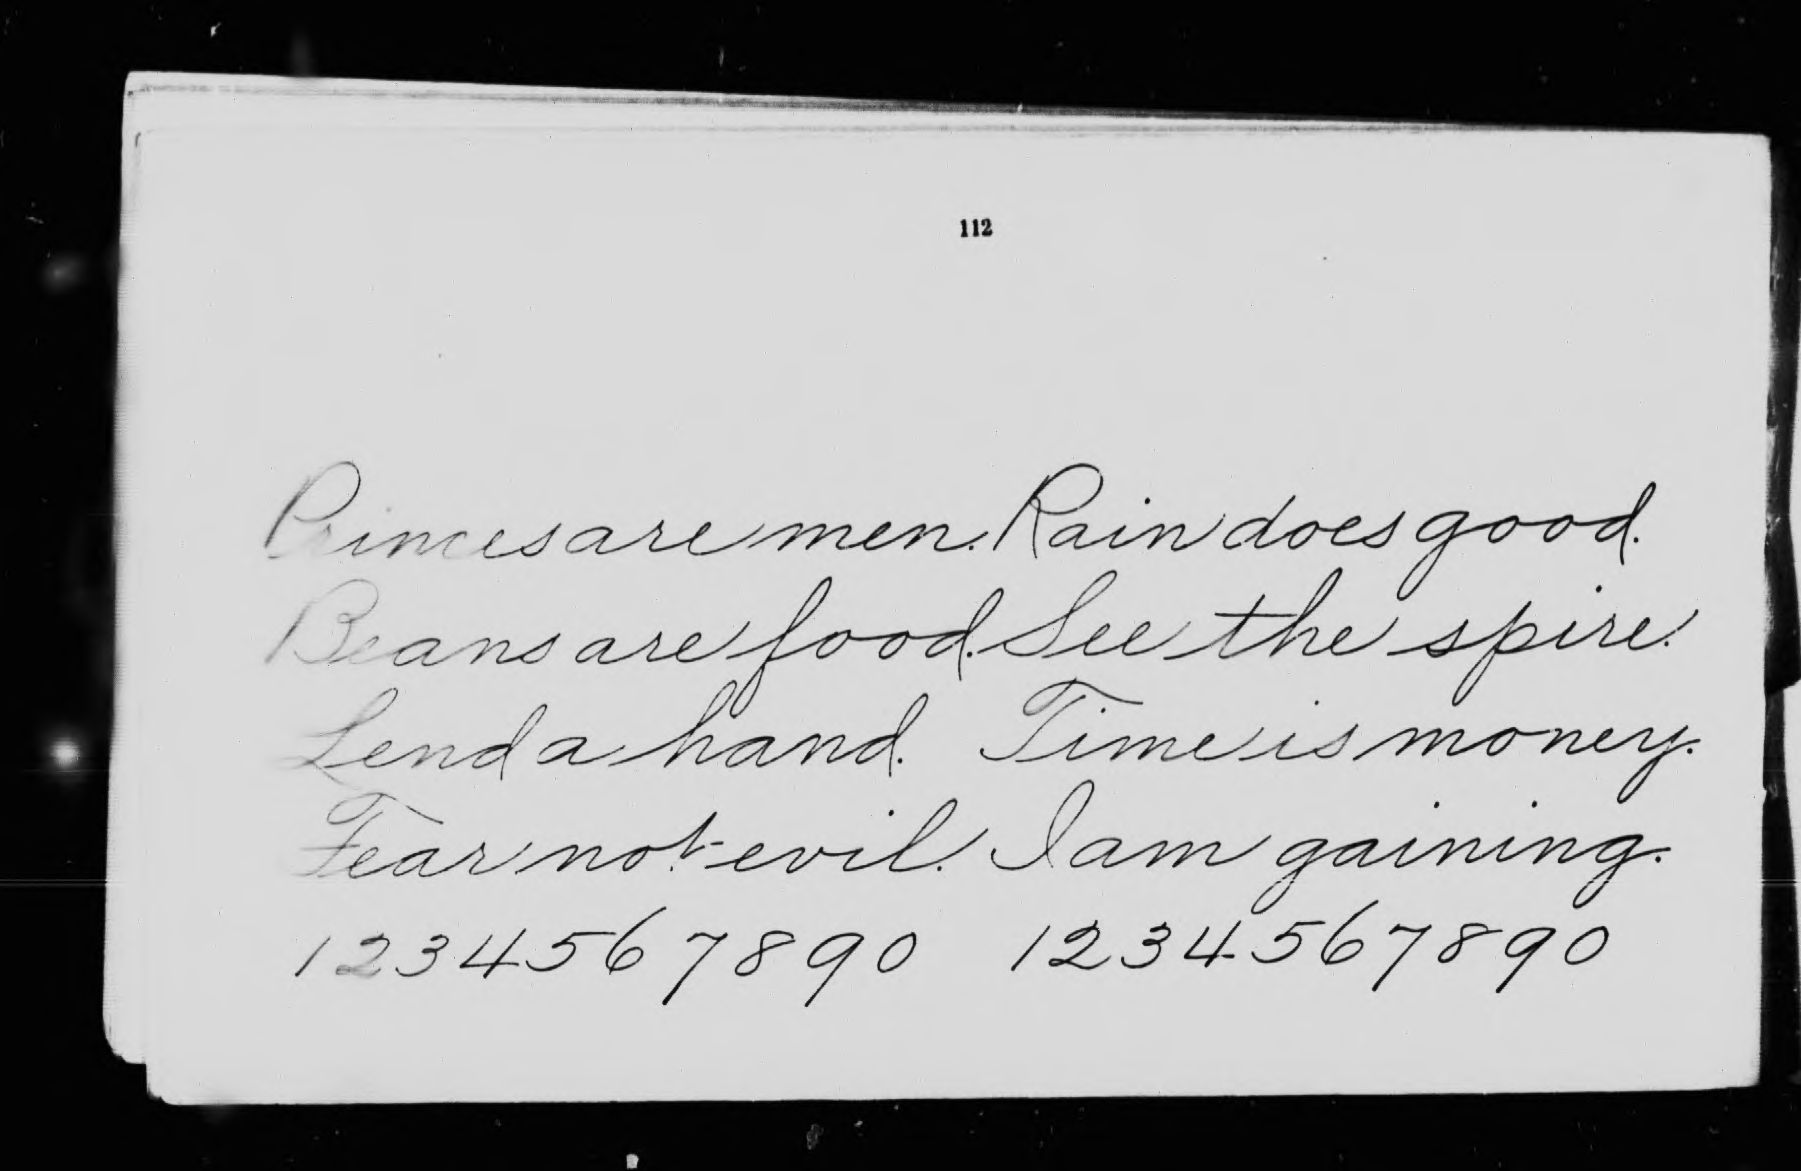 112
Princes are men. Rain does good.
Beans are food. See the spire.
Lend a hand. Time is money.
Fear not evil. I am gaining.
1234567890 1234567890